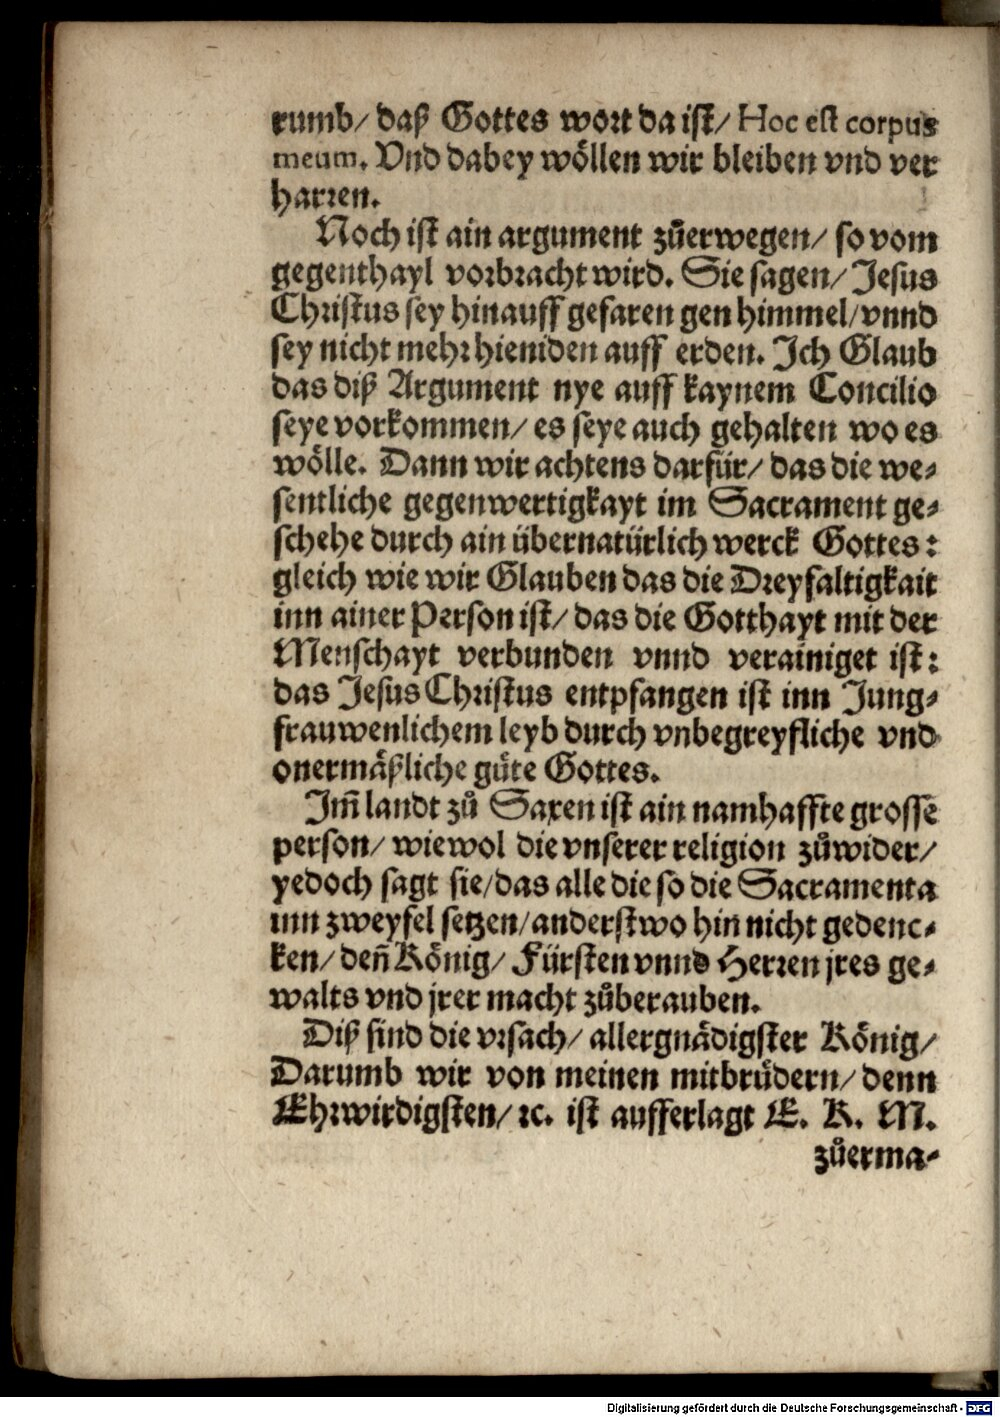 rumb/ daß Gottes wort da ist/ Hoc est corpus
meum. Vnd dabey wöllen wir bleiben vnd ver
harren.
Noch ist ain argument zůerwegen/ so vom
gegenthayl vorbracht wird. Sie sagen/ Jesus
Christus sey hinauff gefaren gen himmel/ vnnd
sey nicht mehr hieniden auff erden. Jch Glaub
das diß Argument nye auff kaynem Concilio
seye vorkommen/ es seye auch gehalten wo es
wölle. Dann wir achtens darfür/ das die we⸗
sentliche gegenwertigkayt im Sacrament ge⸗
schehe durch ain übernatürlich werck Gottes:
gleich wie wir Glauben das die Dreyfaltigkait
inn ainer Person ist/ das die Gotthayt mit der
Menschayt verbunden vnnd verainiget ist:
das Jesus Christus entpfangen ist inn Jung⸗
frauwenlichem leyb durch vnbegreyfliche vnd
onermäßliche güte Gottes.
Jm̃ landt zů Saxen ist ain namhaffte grosse
person/ wiewol die vnserer religion zůwider/
yedoch sagt sie/ das alle die so die Sacramenta
inn zweyfel setzen/ anderstwo hin nicht gedenc⸗
ken/ deñ König/ Fürsten vnnd Herren jres ge⸗
walts vnd jrer macht zůberauben.
Diß sind die vrsach/ allergnädigster König/
Darumb wir von meinen mitbrüdern/ denn
Ehrwirdigsten/ ꝛc. ist aufferlagt E. K. M.
zůerma⸗
Digitalisierung gefördert durch die Deutsche Forschungsgemeinschaft - DFG